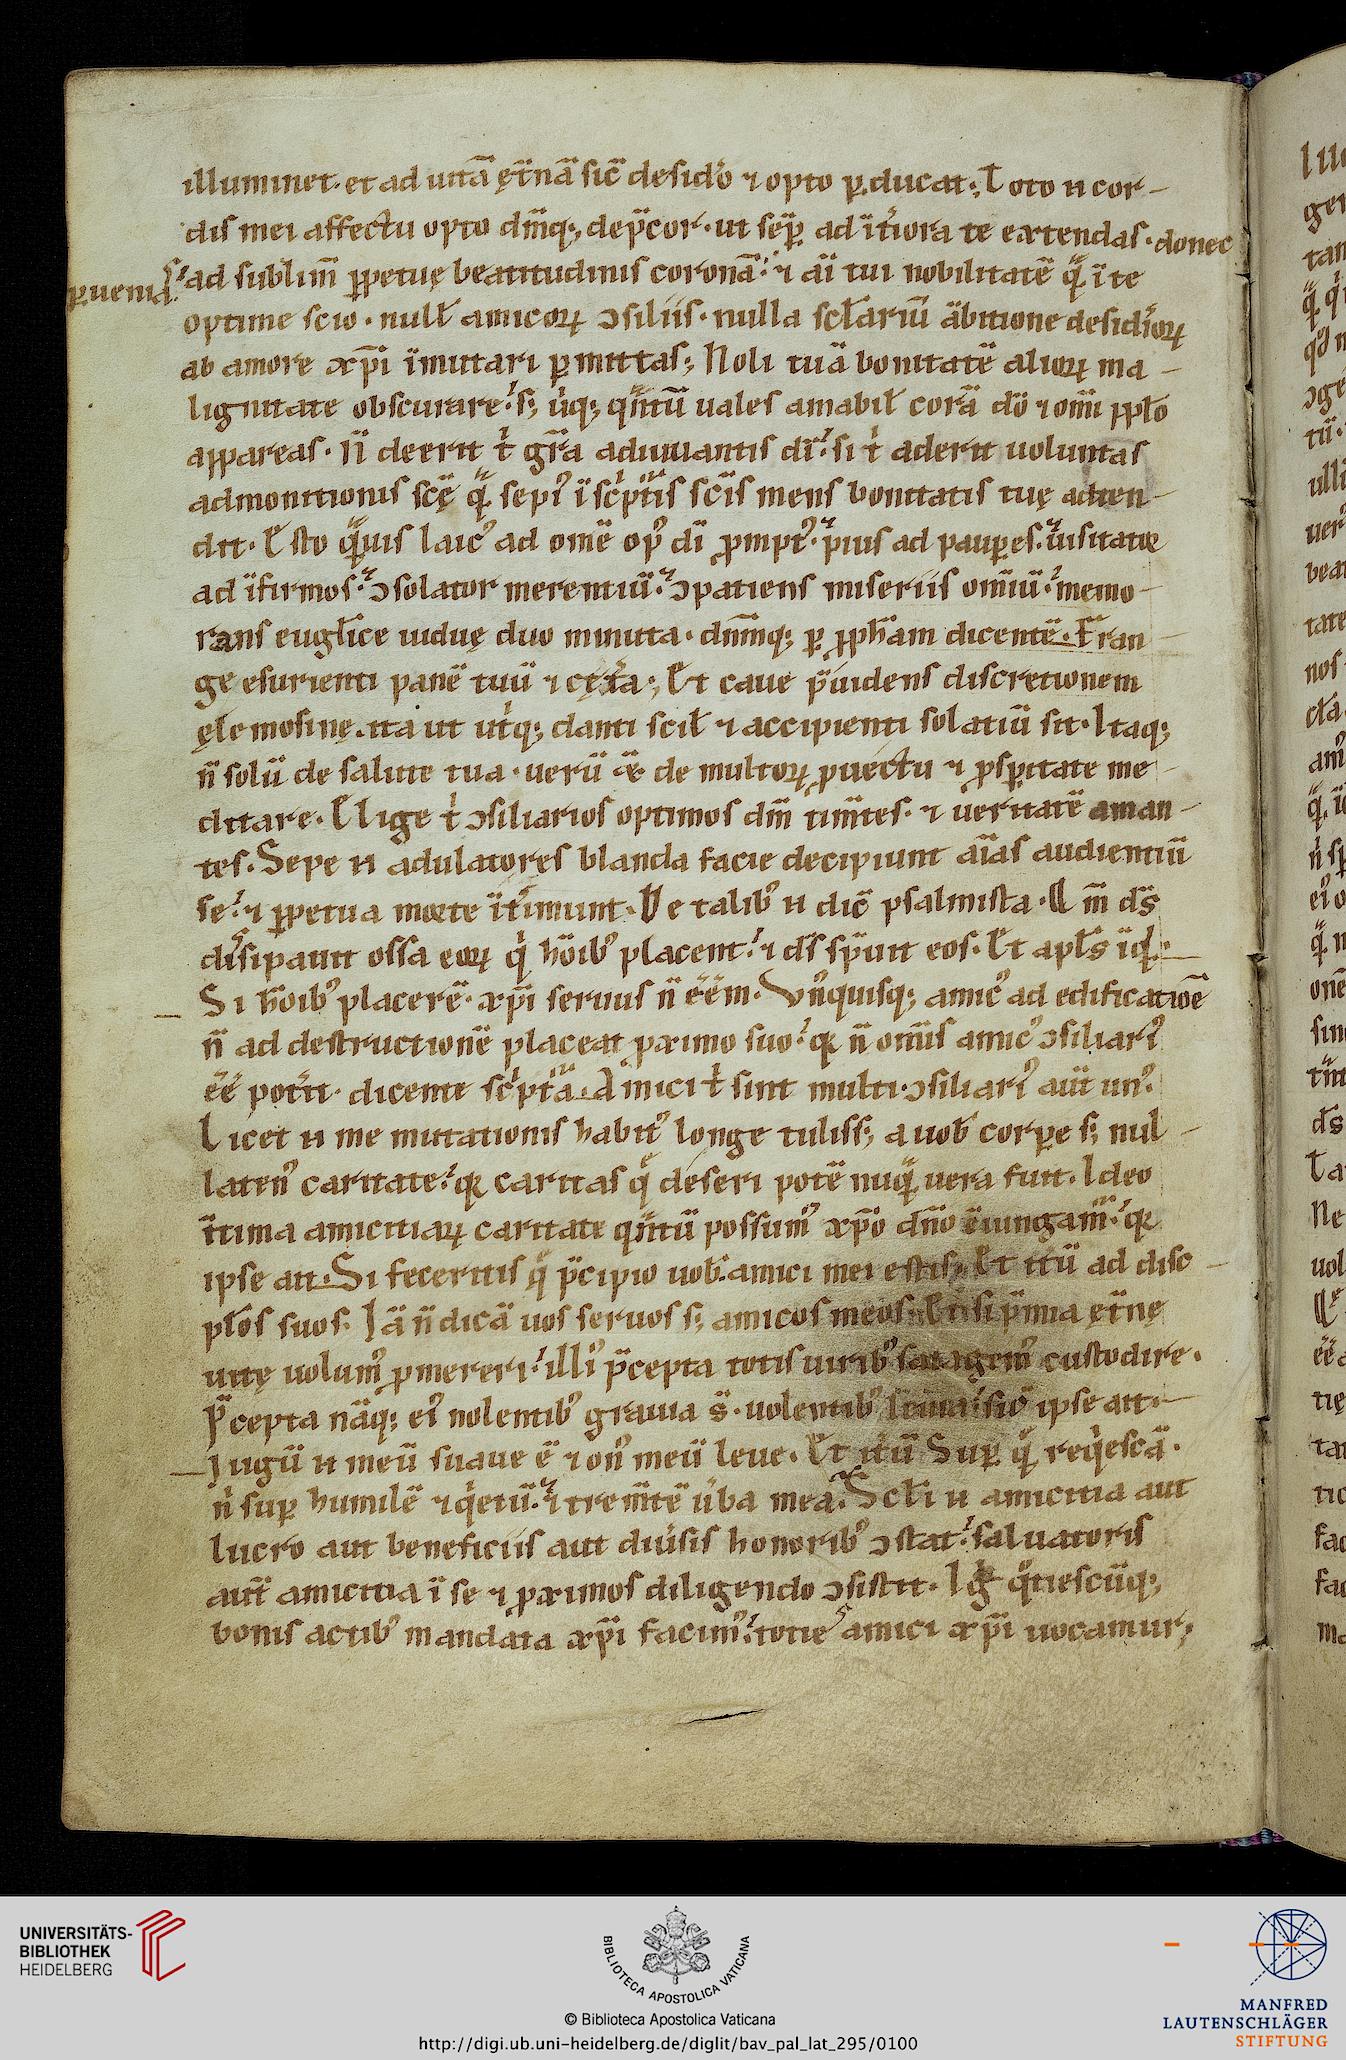 illuminet. et ad uitā ęt̄nā sic̄ desid̓o ⁊ opto ꝑducat; Toto n̄ cor-
dis mei affectu opto dn̄mq; dep̄cor. ut sēp ad īt̓iora te extendas. donec
ꝑuenias ad sublim̄ ꝑpetuę beatitudinis coronā. ⁊ āi tui nobilitatē q̄ ī te
optime scio. null̄ amicoꝝ ↄsiliis. nulla scl̄ariū ābitione desid̓ioꝝ
ab amore xp̄i īmutari ꝑmittas; Noli tuā bonitatē alioꝝ ma-
lignitate obscurare. s; u̓q; qn̄tū uales amabil̄ corā dō ⁊ om̄i ppl̄o
appareas. N̄ deerit t̓ gr̄a adiuuantis dī. si t̓ aderit uoluntas
admonitionis scę̄ q̄ sepi᷒ ī sc̓pt̄is sc̄is mens bonitatis tuę adten-
dit. Esto q̄ꝫuis laic᷒ ad om̄e op᷒ dī ꝓmpt᷒. p̓ius ad pauꝑes. uisitator
ad īfirmos. ↄsolator merentiū. ↄpatiens miseriis om̄iū. memo-
rans eugl̄ice uiduę duo minuta. dn̄mq; ꝑ ꝓph̄am dicentē. Fran-
ge esurienti panē tuū ⁊ cęt̓a; Et caue p̄uidens discretionem
ęlemosinę. ita ut ut̓q; danti scil̄ ⁊ accipienti solatiū sit. Itaq;
n̄ solū de salute tua. uerū &̄ de multoꝝ ꝓuectu ⁊ ꝓsꝑitate me-
ditare. Elige t̓ ↄsiliarios optimos dm̄ tim̄tes. ⁊ ueritatē aman-
tes. Sepe n̄ adulatores blanda facie decipiunt āias audientiū
se. ⁊ ꝑpetua morte īt̓imunt. De talib᷒ n̄ dic̄ psalmista. Qm̄ ds̄
dissipauit ossa eoꝝ q̓ hōib᷒ placent. ⁊ ds̄ sp̄uit eos. Et apl̄s īq̓d.
Si hōib᷒ placerē. xp̄i seruus n̄ ēēm. Vn᷒quisq; amic᷒ ad edificationē
n̄ ad destructionē placeat ꝓximo suo. qꝛ n̄ om̄is amic᷒ ↄsiliari᷒
ēē pot̓it. dicente sc̓pt̄a. Amici t̓ sint multi. ↄsiliari᷒ aut̄ un᷒.
Licet n̄ me mutationis habit᷒ longe tuliss; a uob̄ corꝑe s; nul-
laten᷒ caritate. qꝛ caritas q̄ deseri potē nūq̄ uera fuit. Ideo
ītima amicitiaꝝ caritate qn̄tū possum᷒ xp̄o dn̄o ēiungam᷒. qꝛ
ipse ait. Si feceritis q̄ p̄cipio uob̄. amici mei estis; Et itū ad disc-
pl̄os suos. Iā n̄ dicā uos seruos s; amicos meos. Et si p̄mia ęt̄nę
uitę uolum᷒ ꝓmereri. illi᷒ p̄cepta totis uirib᷒ satagem᷒ custodire.
P̄cepta nāq; ei᷒ nolentib᷒ grauia s̄. uolentib᷒ leuia. sic̄ ipse ait.
Iugū n̄ meū suaue ē ⁊ on᷒ meū leue. Et itū Suꝑ q̄ req̓escā.
n̓ suꝑ humilē ⁊ q̓etū. ⁊ trem̄tē u̓ba mea. Scl̄i n̄ amicitia aut
lucro aut beneficiis aut diu̓sis honorib᷒ ↄstat. saluatoris
aut̄ amicitia ī se ⁊ ꝓximos diligendo ↄsistit. Ig̓ q̊tiescūq;
bonis actib᷒ mandata xp̄i facim᷒. toties amici xp̄i uocamur;
UNIVERSITÄTS-
BIBLIOTHEK
HEIDELBERG
BIBLIOTECA APOSTOLICA VATICANA
© Biblioteca Apostolica Vaticana
http://digi.ub.uni-heidelberg.de/diglit/bav_pal_lat_295/0100
MANFRED
LAUTENSCHLÄGER
STIFTUNG